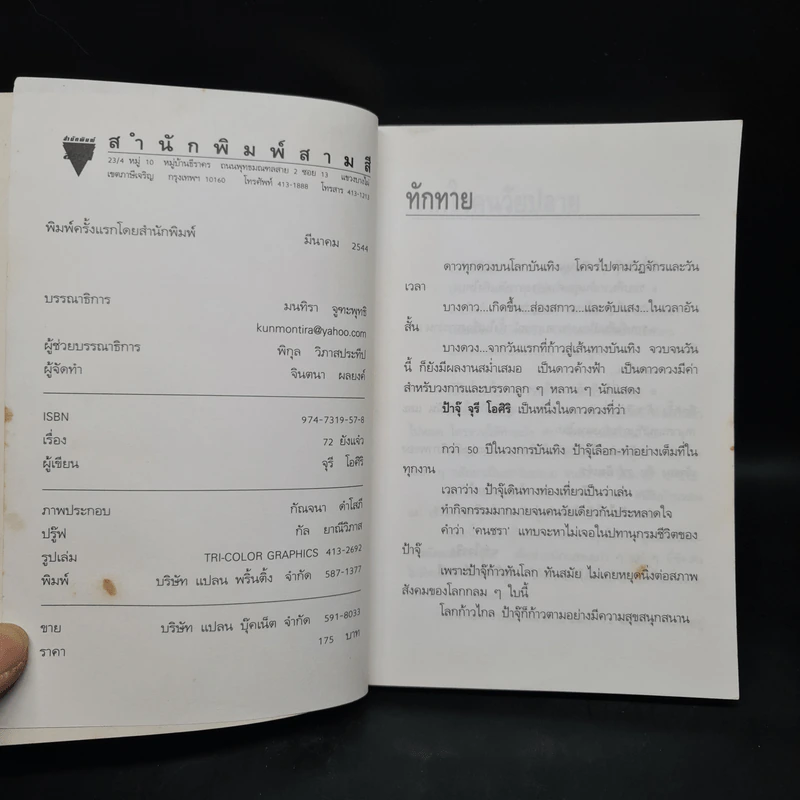 สำนักพิมพ์
สำนักพิมพ์สามสี
23/4 หมู่ 10 หมู่บ้านธีราคร ถนนพุทธมณฑลสาย 2 ซอย 13 แขวงบางไผ่
เขตภาษีเจริญ กรุงเทพฯ 10160 โทรศัพท์ 413-1888 โทรสาร 413-1213
พิมพ์ครั้งแรกโดยสำนักพิมพ์ มีนาคม 2544
บรรณาธิการ มนทิรา จูฑะพุทธิ
kunmontira@yahoo.com
ผู้ช่วยบรรณาธิการ พิกุล วิภาสประทีป
ผู้จัดทำ จินตนา ผลยงค์
ISBN 974-7319-57-8
เรื่อง 72 ยังแจ๋ว
ผู้เขียน จุรี โอศิริ
ภาพประกอบ กัณจนา ดำโสภี
ปรู๊ฟ กัล ยาณีวิภาส
รูปเล่ม TRI-COLOR GRAPHICS 413-2692
พิมพ์ บริษัท แปลน พริ้นติ้ง จำกัด 587-1377
ขาย บริษัท แปลน บุ๊คเน็ต จำกัด 591-8033
ราคา 175 บาท
ทักทาย
ดาวทุกดวงบนโลกบันเทิง โคจรไปตามวัฏจักรและวัน
เวลา
บางดาว...เกิดขึ้น...ส่องสกาว...และดับแสง...ในเวลาอัน
สั้น
บางดวง...จากวันแรกที่ก้าวสู่เส้นทางบันเทิง จวบจนวัน
นี้ ก็ยังมีผลงานสม่ำเสมอ เป็นดาวค้างฟ้า เป็นดาวดวงมีค่า
สำหรับวงการและบรรดาลูก ๆ หลาน ๆ นักแสดง
ป้าจุ๊ จุรี โอศิริ เป็นหนึ่งในดาวดวงที่ว่า
กว่า 50 ปีในวงการบันเทิง ป้าจุ๊เลือก-ทำอย่างเต็มที่ใน
ทุกงาน
เวลาว่าง ป้าจุ๊เดินทางท่องเที่ยวเป็นว่าเล่น
ทำกิจกรรมมากมายจนคนวัยเดียวกันประหลาดใจ
คำว่า ‘คนชรา’ แทบจะหาไม่เจอในปทานุกรมชีวิตของ
ป้าจุ๊
เพราะป้าจุ๊ก้าวทันโลก ทันสมัย ไม่เคยหยุดนิ่งต่อสภาพ
สังคมของโลกกลม ๆ ใบนี้
โลกก้าวไกล ป้าจุ๊ก็ก้าวตามอย่างมีความสุขสนุกสนาน